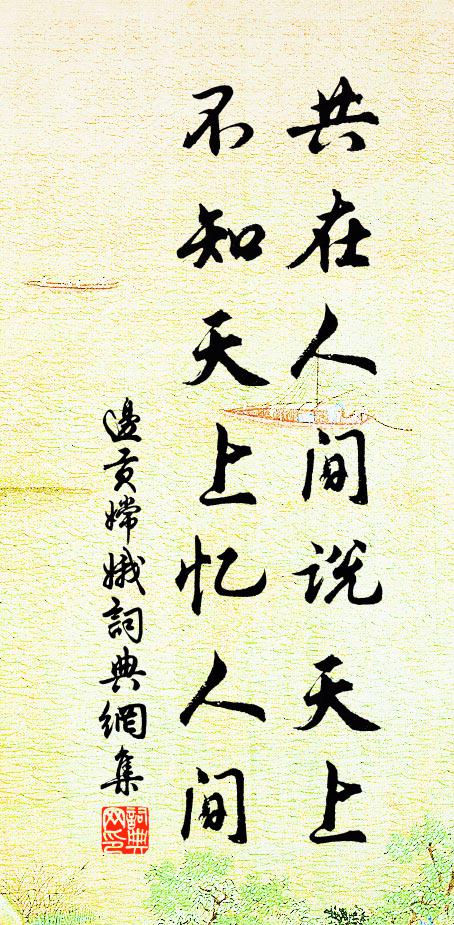 共在人间说天上
不知天上忆人间
邊贡嫦娥詞典網集
詞典
网印